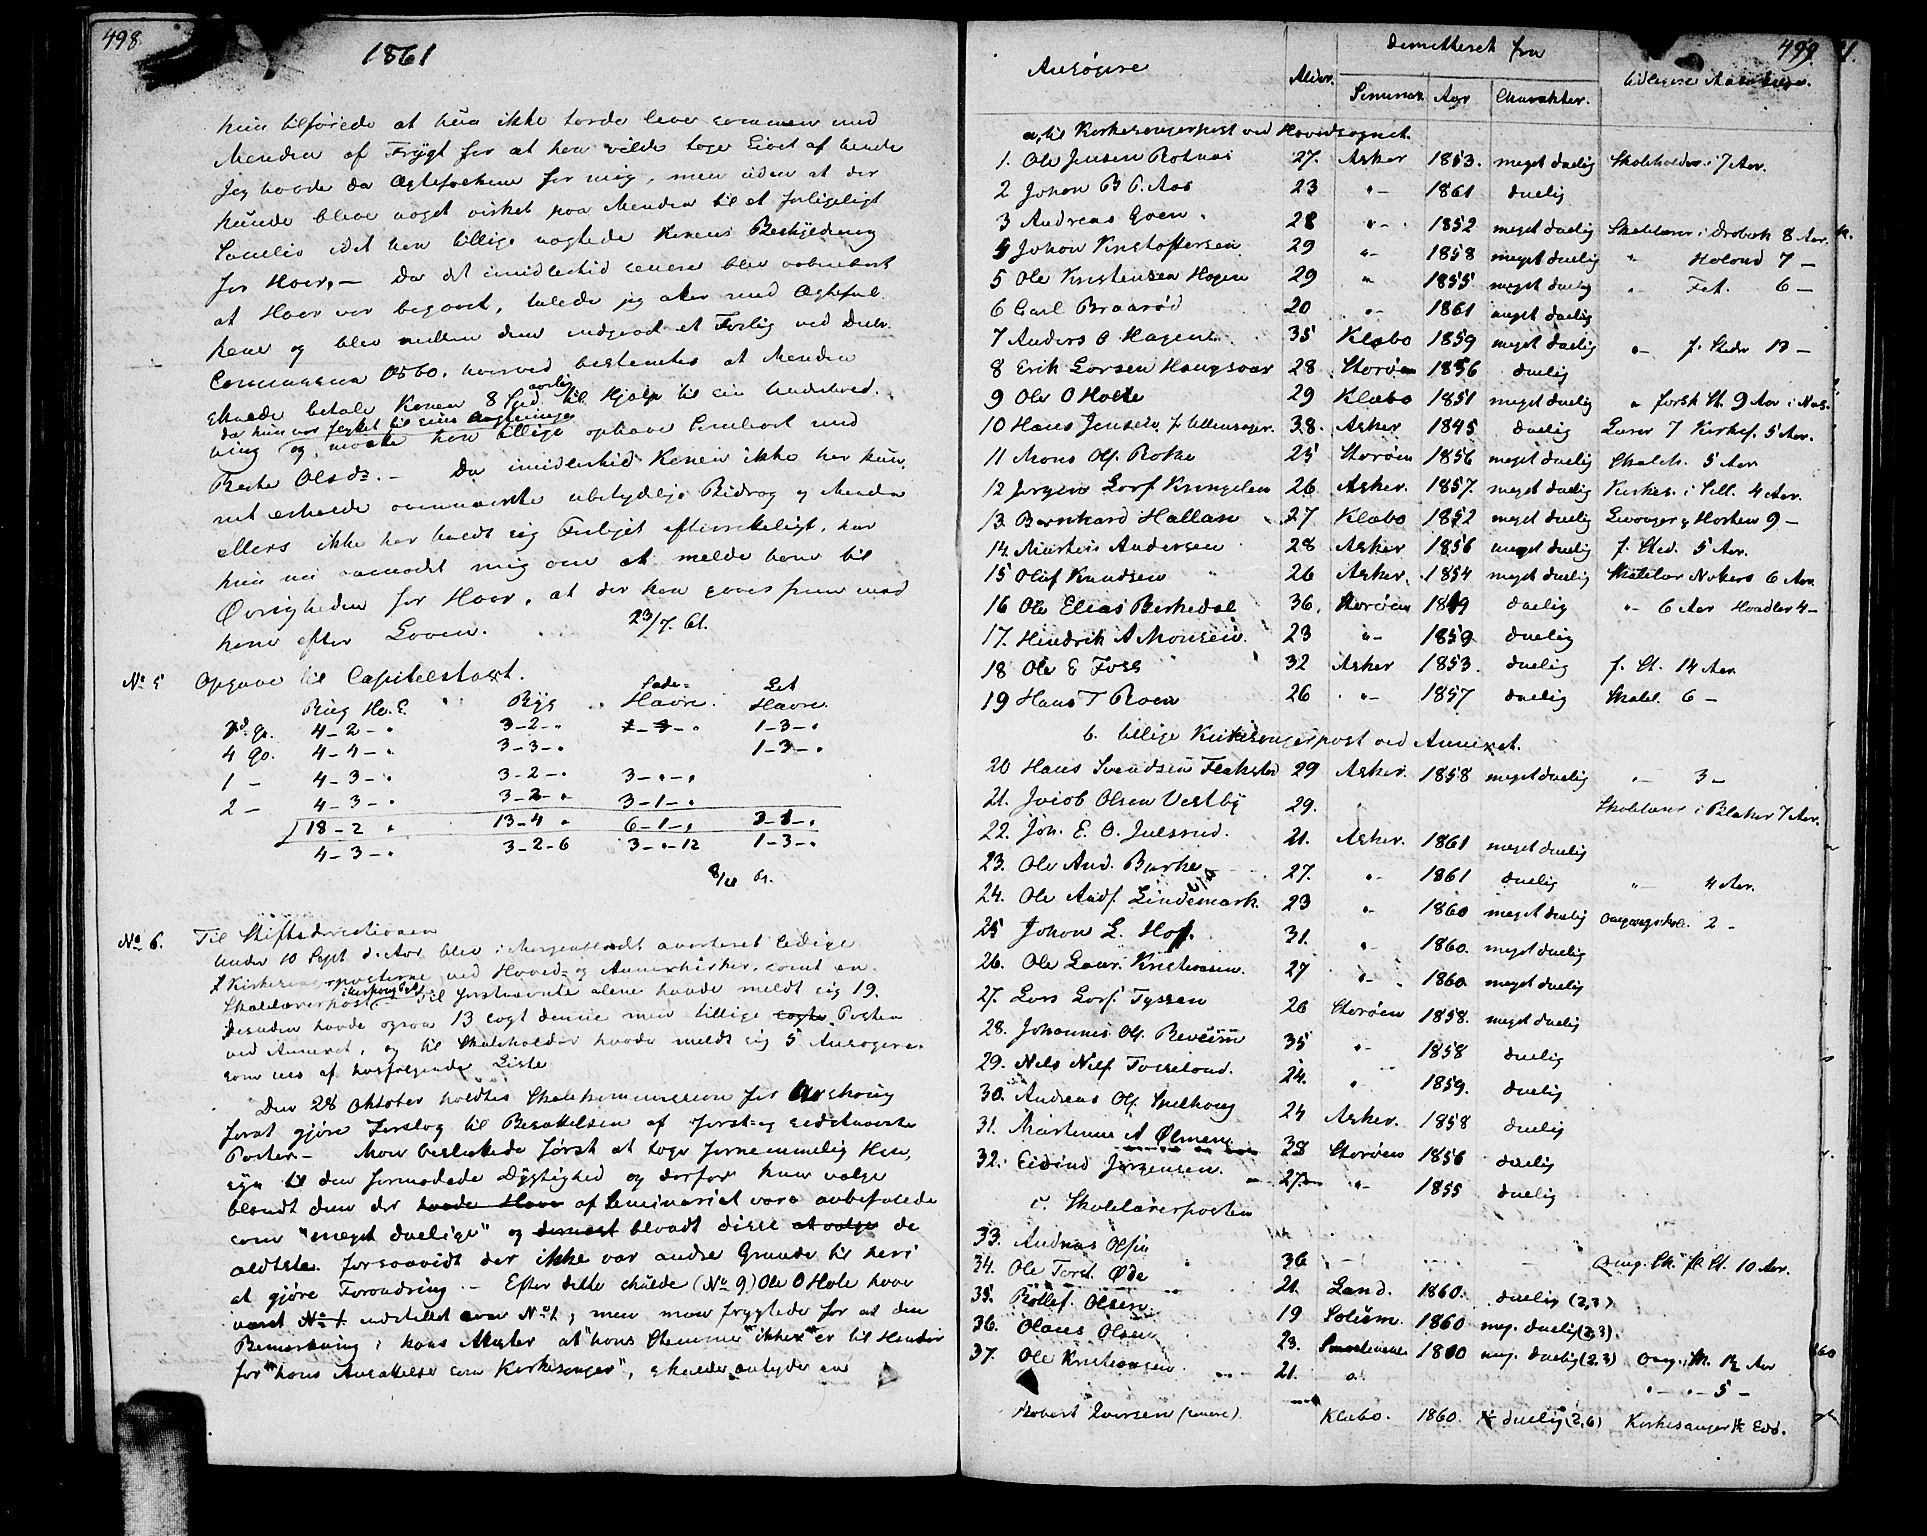 498.
1861
hun tilføiede at hun ikke torde leve sammen med
Manden af Frygt for at han vilde tage Livet af hende
Jeg havde da Ægtefolkene for mig, men uden at der
kunde blive noget virket paa Manden til et forligeligt
Samliv idet han tillige nægtede Konens Beskyldning
for Hoer. — Da det imidlertid senere blev aabenbart
at Hoer var begaaet, talede jeg atter med Ægtefol-
kene og blev mellem dem indgaaet et Forlig ved
Commissionen hvorved bestemtes at Manden
skulde betale Konen 8 Spd. aarlig til Hjælp til sin Underhold-
da hun var flyttet til sine
ning og maatte han tillige ophæve Samkvæm med
Berte Olsd. — Da imidlertid Konen ikke har kun-
net erholde ubetydelige Bidrag og Manden
ellers ikke har holdt sig Forliget efterrettelig, har
hun nu anmodet mig om at melde ham til
Øvrigheden for Hoer, at der kan gaaes frem mod
ham efter Loven. 23/7. 61.
No 5 Opgave til Capitelstaxt.
Saae- Let
Bÿg Havre. Havre.
3d. Qv. 4-2-" 3-2-" 1-3-"
4 Qv. 4-4-" 3-3-" 1-3-"
1 — 4-3-" 3-2-" 3-"-"
2 — 4-3-" 3-2-" 3-1-"
18-2 " 13-4 " 6-1-"
4-3-" 3-2-6 3-"-12 1-3-"
No 6. Til Stiftsdirectionen
Under 10 Sept d. Aar blev i Morgenbladet averteret ledige
Kirkesangerposterne ved Hoved- og Annexkirker, samt en
Skolelærerpost Til førstnævnte alene havde meldt sig 19.
Desuden havde ogsaa 13 søgt denne men tillige søgte Posten
ved Annexet, og til Skoleholder havde meldt sig 5 Ansøgere
som sees af hosfølgende Liste
Den 28 Oktober holdtes Skolekommission for
forat gjøre Forslag til Besættelsen af først- og sidstnævnte
Poster — Man besluttede først at tage fornemmelig Hen-
syn til den formodede Dygtighed og derfor kun vælge
blandt dem der havde af Seminariet være anbefalede
som "meget duelige" og dernæst blandt disse at vælge de
ældste. forsaavidt der ikke var andre Grunde til heri
at gjøre Forandring. — Efter dette skulde (No 9) Ole O Hole have
været No 1. indstillet som No 1, men man frygtede for at den
Bemærkning i hans Attester at "hans Stemme ikke" er til Hinder
for "hans Ansættelse som Kirkesanger", skulde antyde en
499.
Ansøgere Alder. Demitteret fra tidligere
Seminar Aar Charakter.
a, til Kirkesangerpost ved Hovedsognet.
1. Ole Jensen Rotnes 27. Asker 1853. meget duelig Skoleholder i 7 Aar.
2 Johan B P. Aas 23 "- 1861 duelig
3 Andreas Goen. 28 "- 1852 meget duelig Skolelærer i Drøbak 8 Aar.
4 Johan Kristoffersen 29 "- 1858 meget duelig " Høland 7 —
5 Ole Kristensen Hagen 29 " 1855 meget duelig " Fet. 6 —
6 Carl Braarød 20 "- 1861 meget duelig
7 Anders O Hagen 35 Klæbo 1859 meget duelig " f. Steder 13 —
8 Erik Larsen Haugsvær 28 Storøen 1856 duelig
9 Ole O Holte 29 Klæbo 1851 meget duelig " forsk St. 9 Aar i Næs.
10 Hans Jensen, f. Ullensager. 38. Asker 1845 duelig Lærer 7 Kirkes. 5 Aar.
11 Mons Ols. Rotke 25 Storøen 1856 meget duelig Skoleh. 5 Aar
12 Jørgen Larsf Kringelen 26 Asker. 1857. meget duelig Kirkes. i Lill. 4 Aar.
13. Bernhard Hallan 27 Klæbo 1852 meget duelig Levanger & Horten 9 —
14. Martin Andersen 28 Asker 1856 meget duelig f. Sted. 5 Aar.
15 Oluf Knudsen 26 Asker. 1854 meget duelig Skolelær 6 Aar.
16 Ole Elias Berkedal 36. Storøen 1849 duelig "- 6 Aar Handler 4 —
17. Hendrik A Monsen. 23 "- 1859 duelig
18 Ole E Foss 32 Asker 1853. duelig f. St. 14 Aar.
19 Hans T Roen 26 "- 1857 duelig Skolel. 6 —
b. tillige Kirkesangerpost ved Annexet.
20 Hans Svendsen Flakstad 29 Asker. 1858 meget duelig "- 3 —
21. Jacob Olsen Vestby 29. " Skolelærer i Blaker 7 Aar.
22. Joh. E. O. Julsrud. 21. Asker. 1861 meget duelig
23. Ole And. Berke 27. "- 1861 duelig " 4 Aar.
24. Ole Andf. Lindemark. 23 "- 1860 meget duelig Omgangsskol. 2 —
25 Johan L. Hof. 31. "- 1860. meget duelig
26. Ole Laur. Kristiansen. 27 "- 1860 meget duelig
27. Lars Larsf. Tyssen 26 Storøen 1858. meget duelig
28. Johannes Ols. Reveim 35 "- 1858 duelig
29. Nels Nelsf Tosseland. 24. " 1859. duelig
30. Andreas Ols. Spelhaug 24 Asker. 1858 duelig
31. Martinus A Ølmen 38 Storøen 1856 duelig
32. Eivind Jørgensen. 27 "- 1855 duelig
c. Skolelærerposten
33. Andreas Olsen 36 — — — Omg. Sk. f. St. 10 Aar.
34. Ole Torst. Øde 21. Land. 1860. duelig (2,3)
35. Rollef. Olsen 19 Soleim. 1860 meg. duelig (2,3).
36. Olaus Olsen 23. 1860 meg. duelig (2,3) Omg. Sk. 1½ Aar
37. Ole Kristiansen 21. " "- "- 5 —
Robert Iversen (senere). Klæbo. 1860. duelig (2,6) Kirkesanger